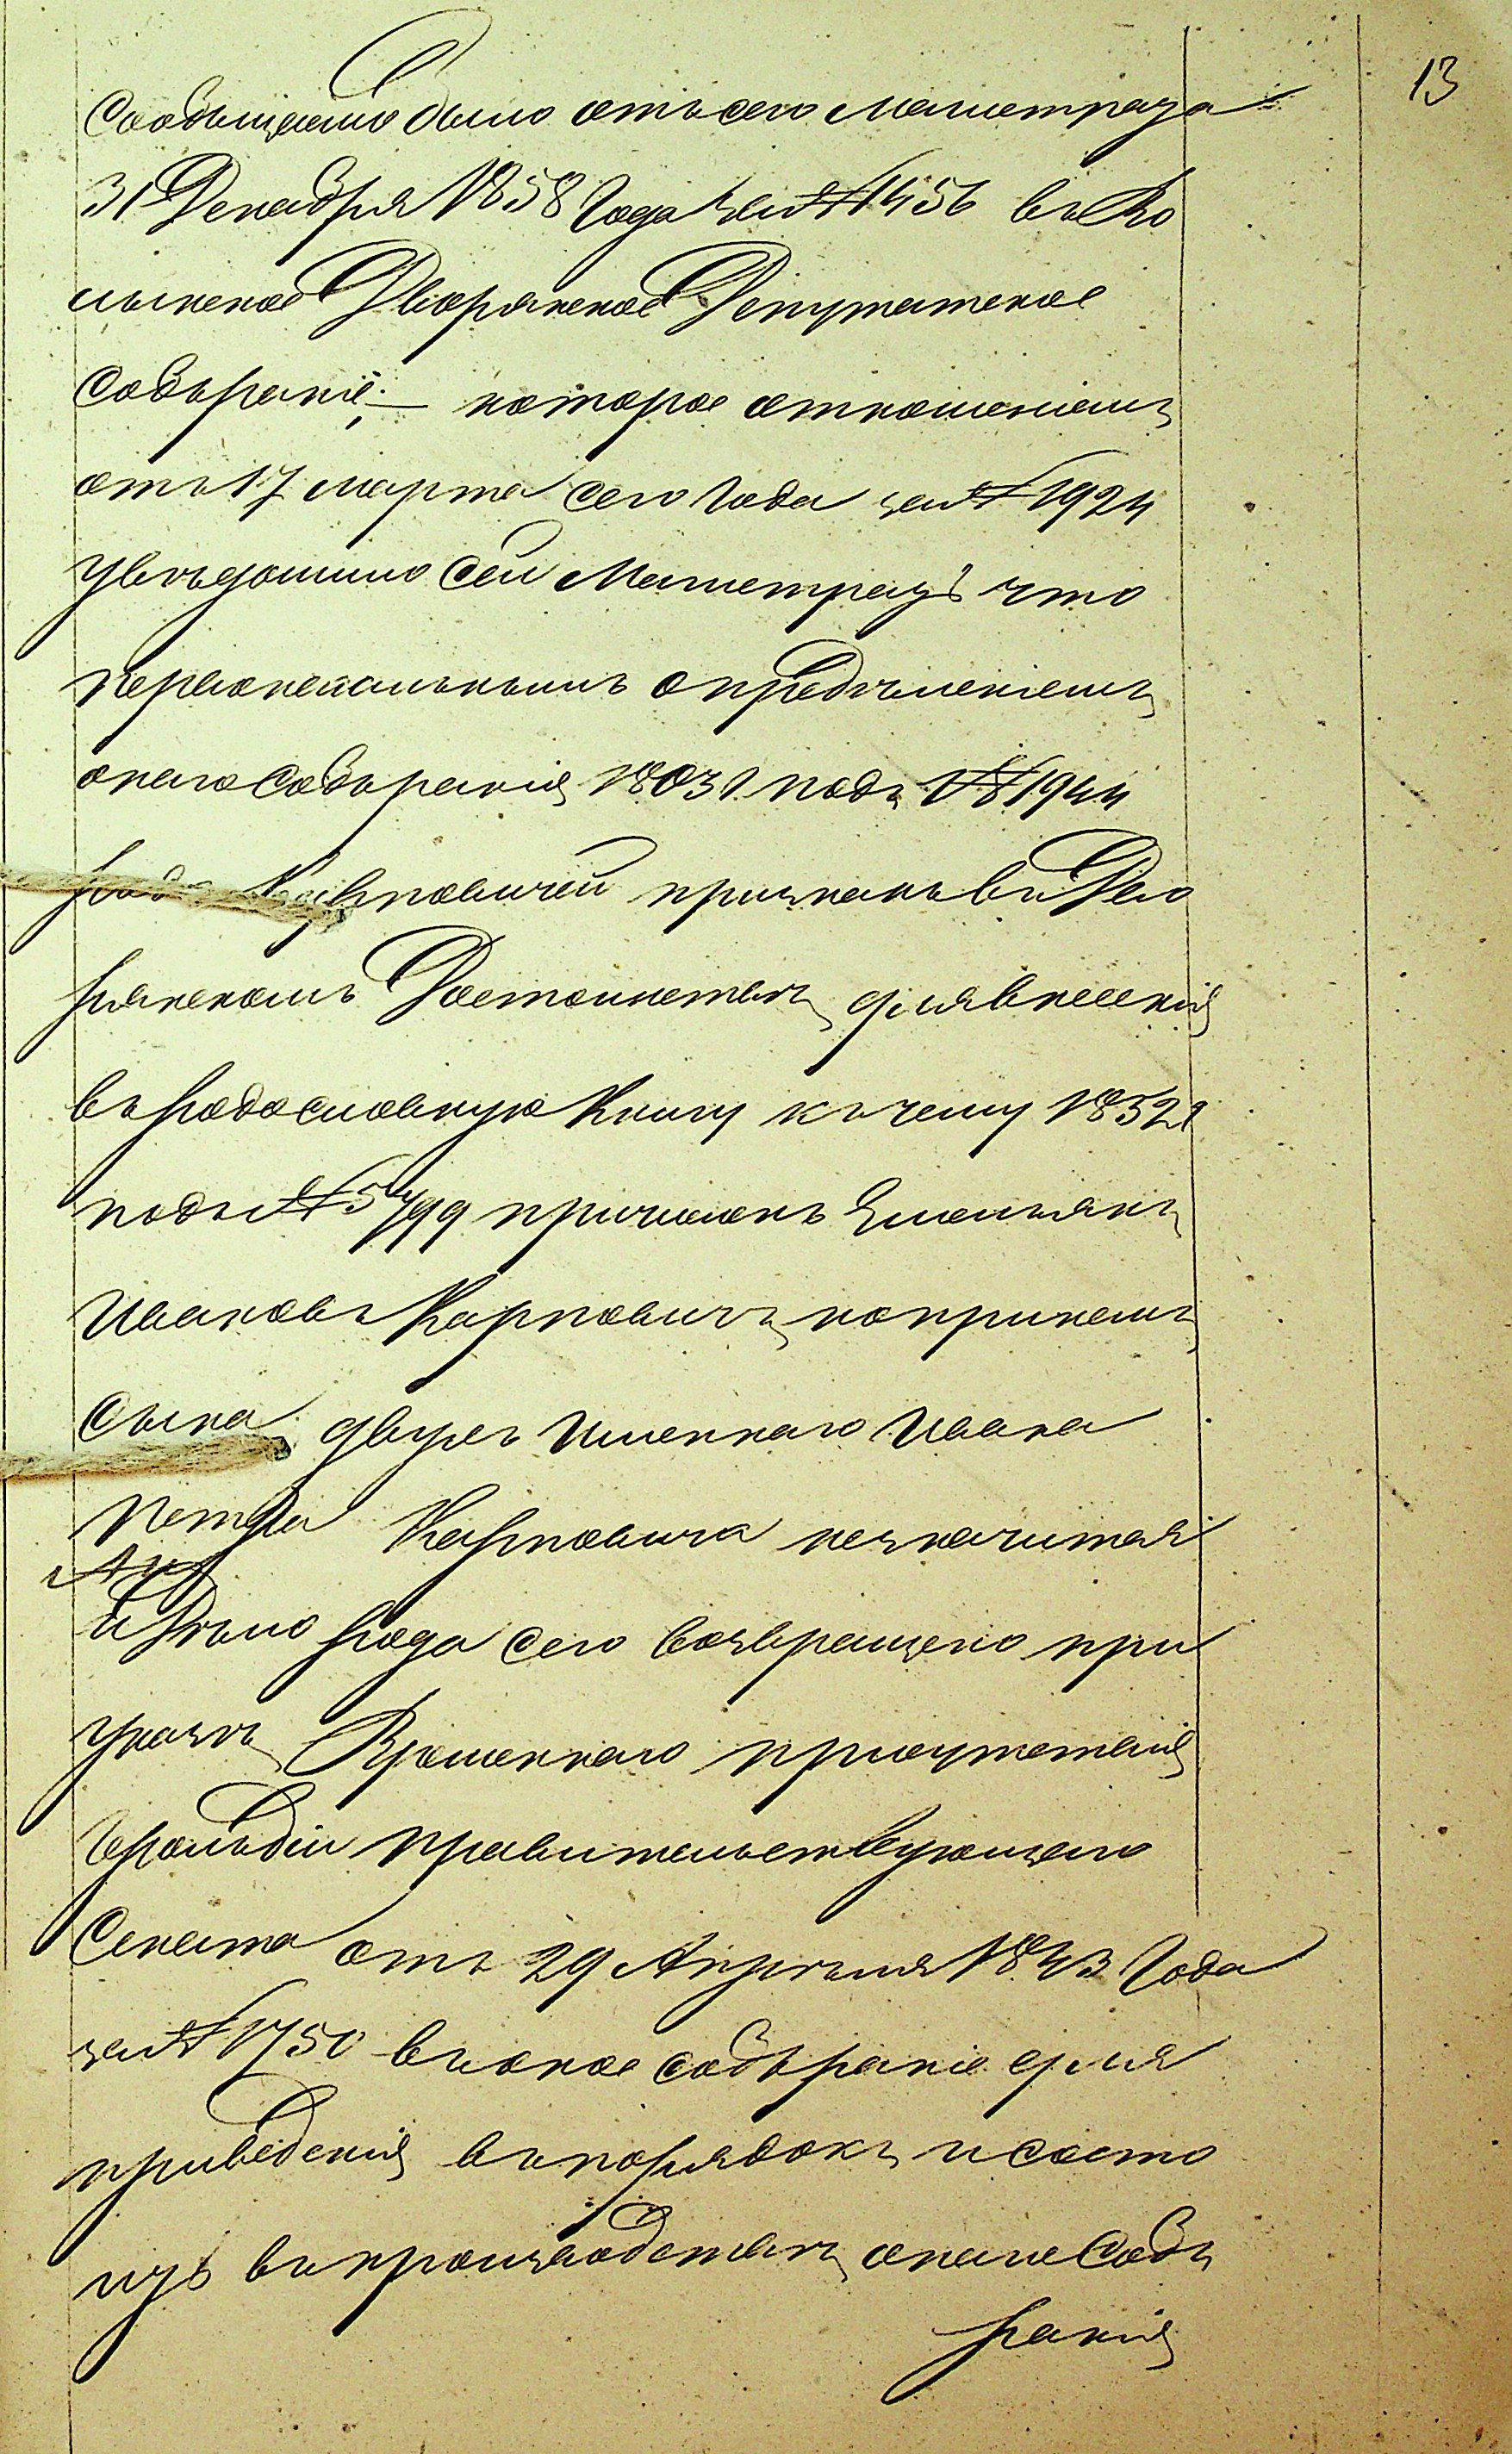 13
Сообщаемо было отъ сего Магистрата
31 Декабря 1858 Года за № 1456 въ Во
лынское Дворянское Депутатское
Собъраніе; — которое отношеніемъ
отъ 17 марта сего Года за № 1924
увѣдомило сей Магистратъ что
первоначальнымъ опредѣленіемъ
онаго Собъранія 1803 г. подъ № 1944
родъ Карповичей признанъ въ Дво
рянскомъ Достоинствѣ для внесенія
въ родословную Книгу къ чему 1832 г
подъ № 5799 причисленъ Емельянъ
Ивановъ Карповичъ, но причемъ
сына, двухъ Именнаго Ивана
Петра Карповича не значится
и Дѣло рода сего возвращено при
указѣ Временнаго присутствія
Герольдіи Правительствующаго
Сената отъ 29 Апрѣля 1843 Года
за № 1750 въ оное собъраніе для
приведенія въ порядокъ и состо
итъ въ производствѣ онаго Собъ
ранія